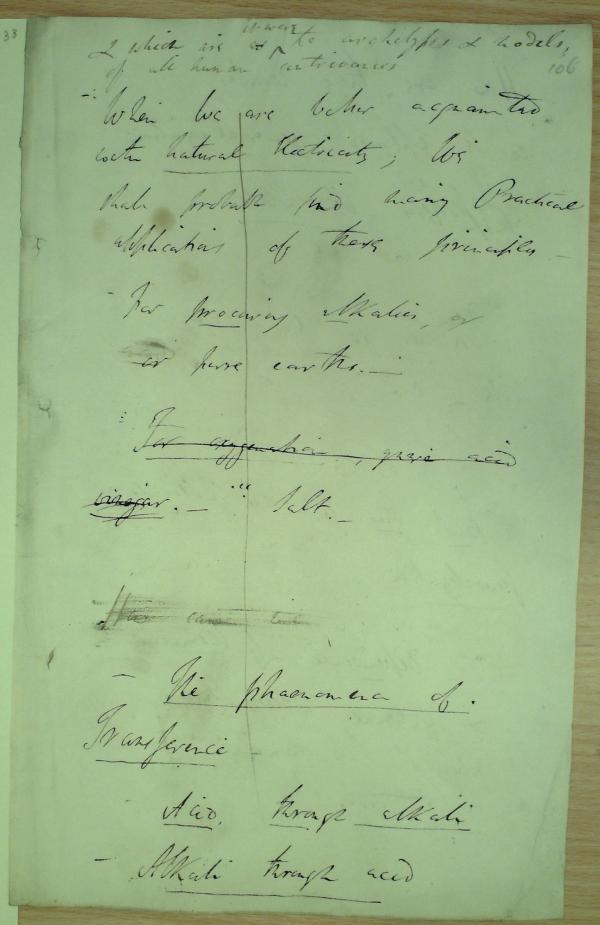 33
it were
& which are as the archetypes & models,
of all human contrivances
106
When we are better acquainted
with natural Electricity; We
shall probab find many Practical
applications of these principles
- For procuring alkalies, or
or pure earths. -
For oxygenation, pure acid
vinegar. - Salt. -
How can
- The phaenomena of.
Transference -
- Acid, through alkali
- Alkali through acid